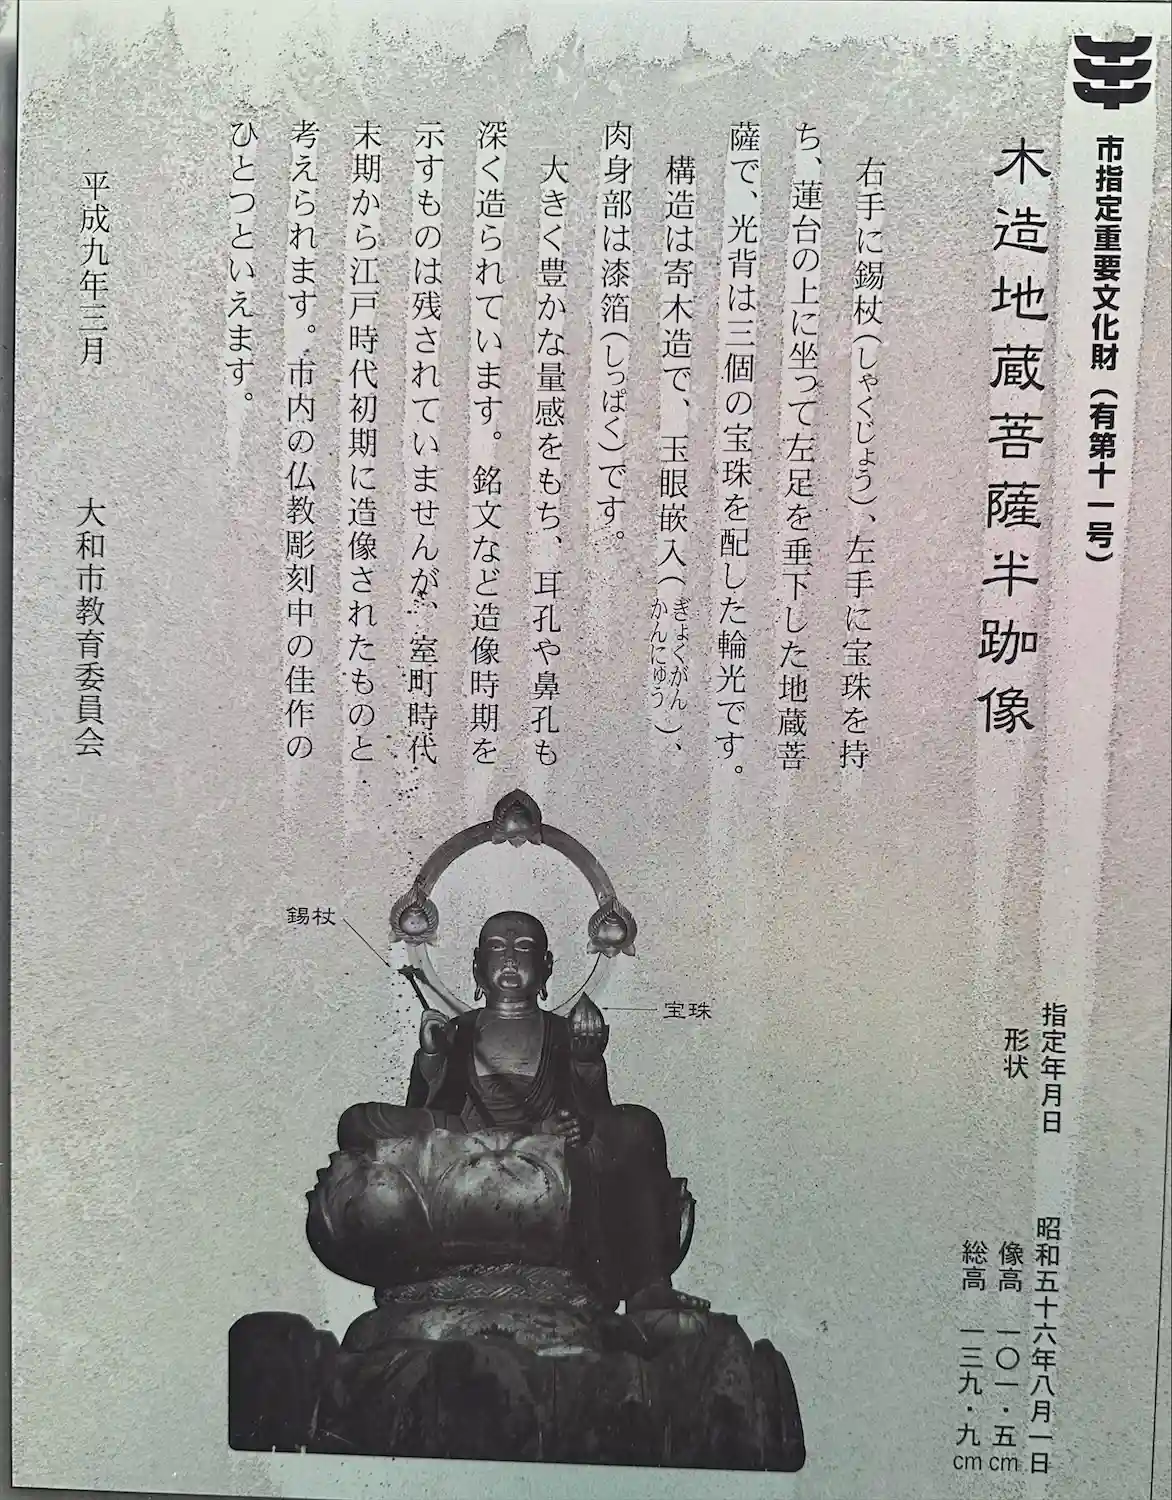 市指定重要文化財(有第十一号)
木造地蔵菩薩半跏像
指定年月日 昭和五十六年八月一日
形状 像高 一〇一・五cm
総高 一三九・九cm
右手に錫杖(しゃくじょう)、左手に宝珠を持
ち、蓮台の上に坐って左足を垂下した地蔵菩
薩で、光背は三個の宝珠を配した輪光です。
構造は寄木造で、玉眼嵌入(ぎょくがんかんにゅう)、
肉身部は漆箔(しっぱく)です。
大きく豊かな量感をもち、耳孔や鼻孔も
深く造られています。銘文など造像時期を
示すものは残されていませんが、室町時代
末期から江戸時代初期に造像されたものと
考えられます。市内の仏教彫刻中の佳作の
ひとつといえます。
平成九年三月 大和市教育委員会
錫杖
宝珠